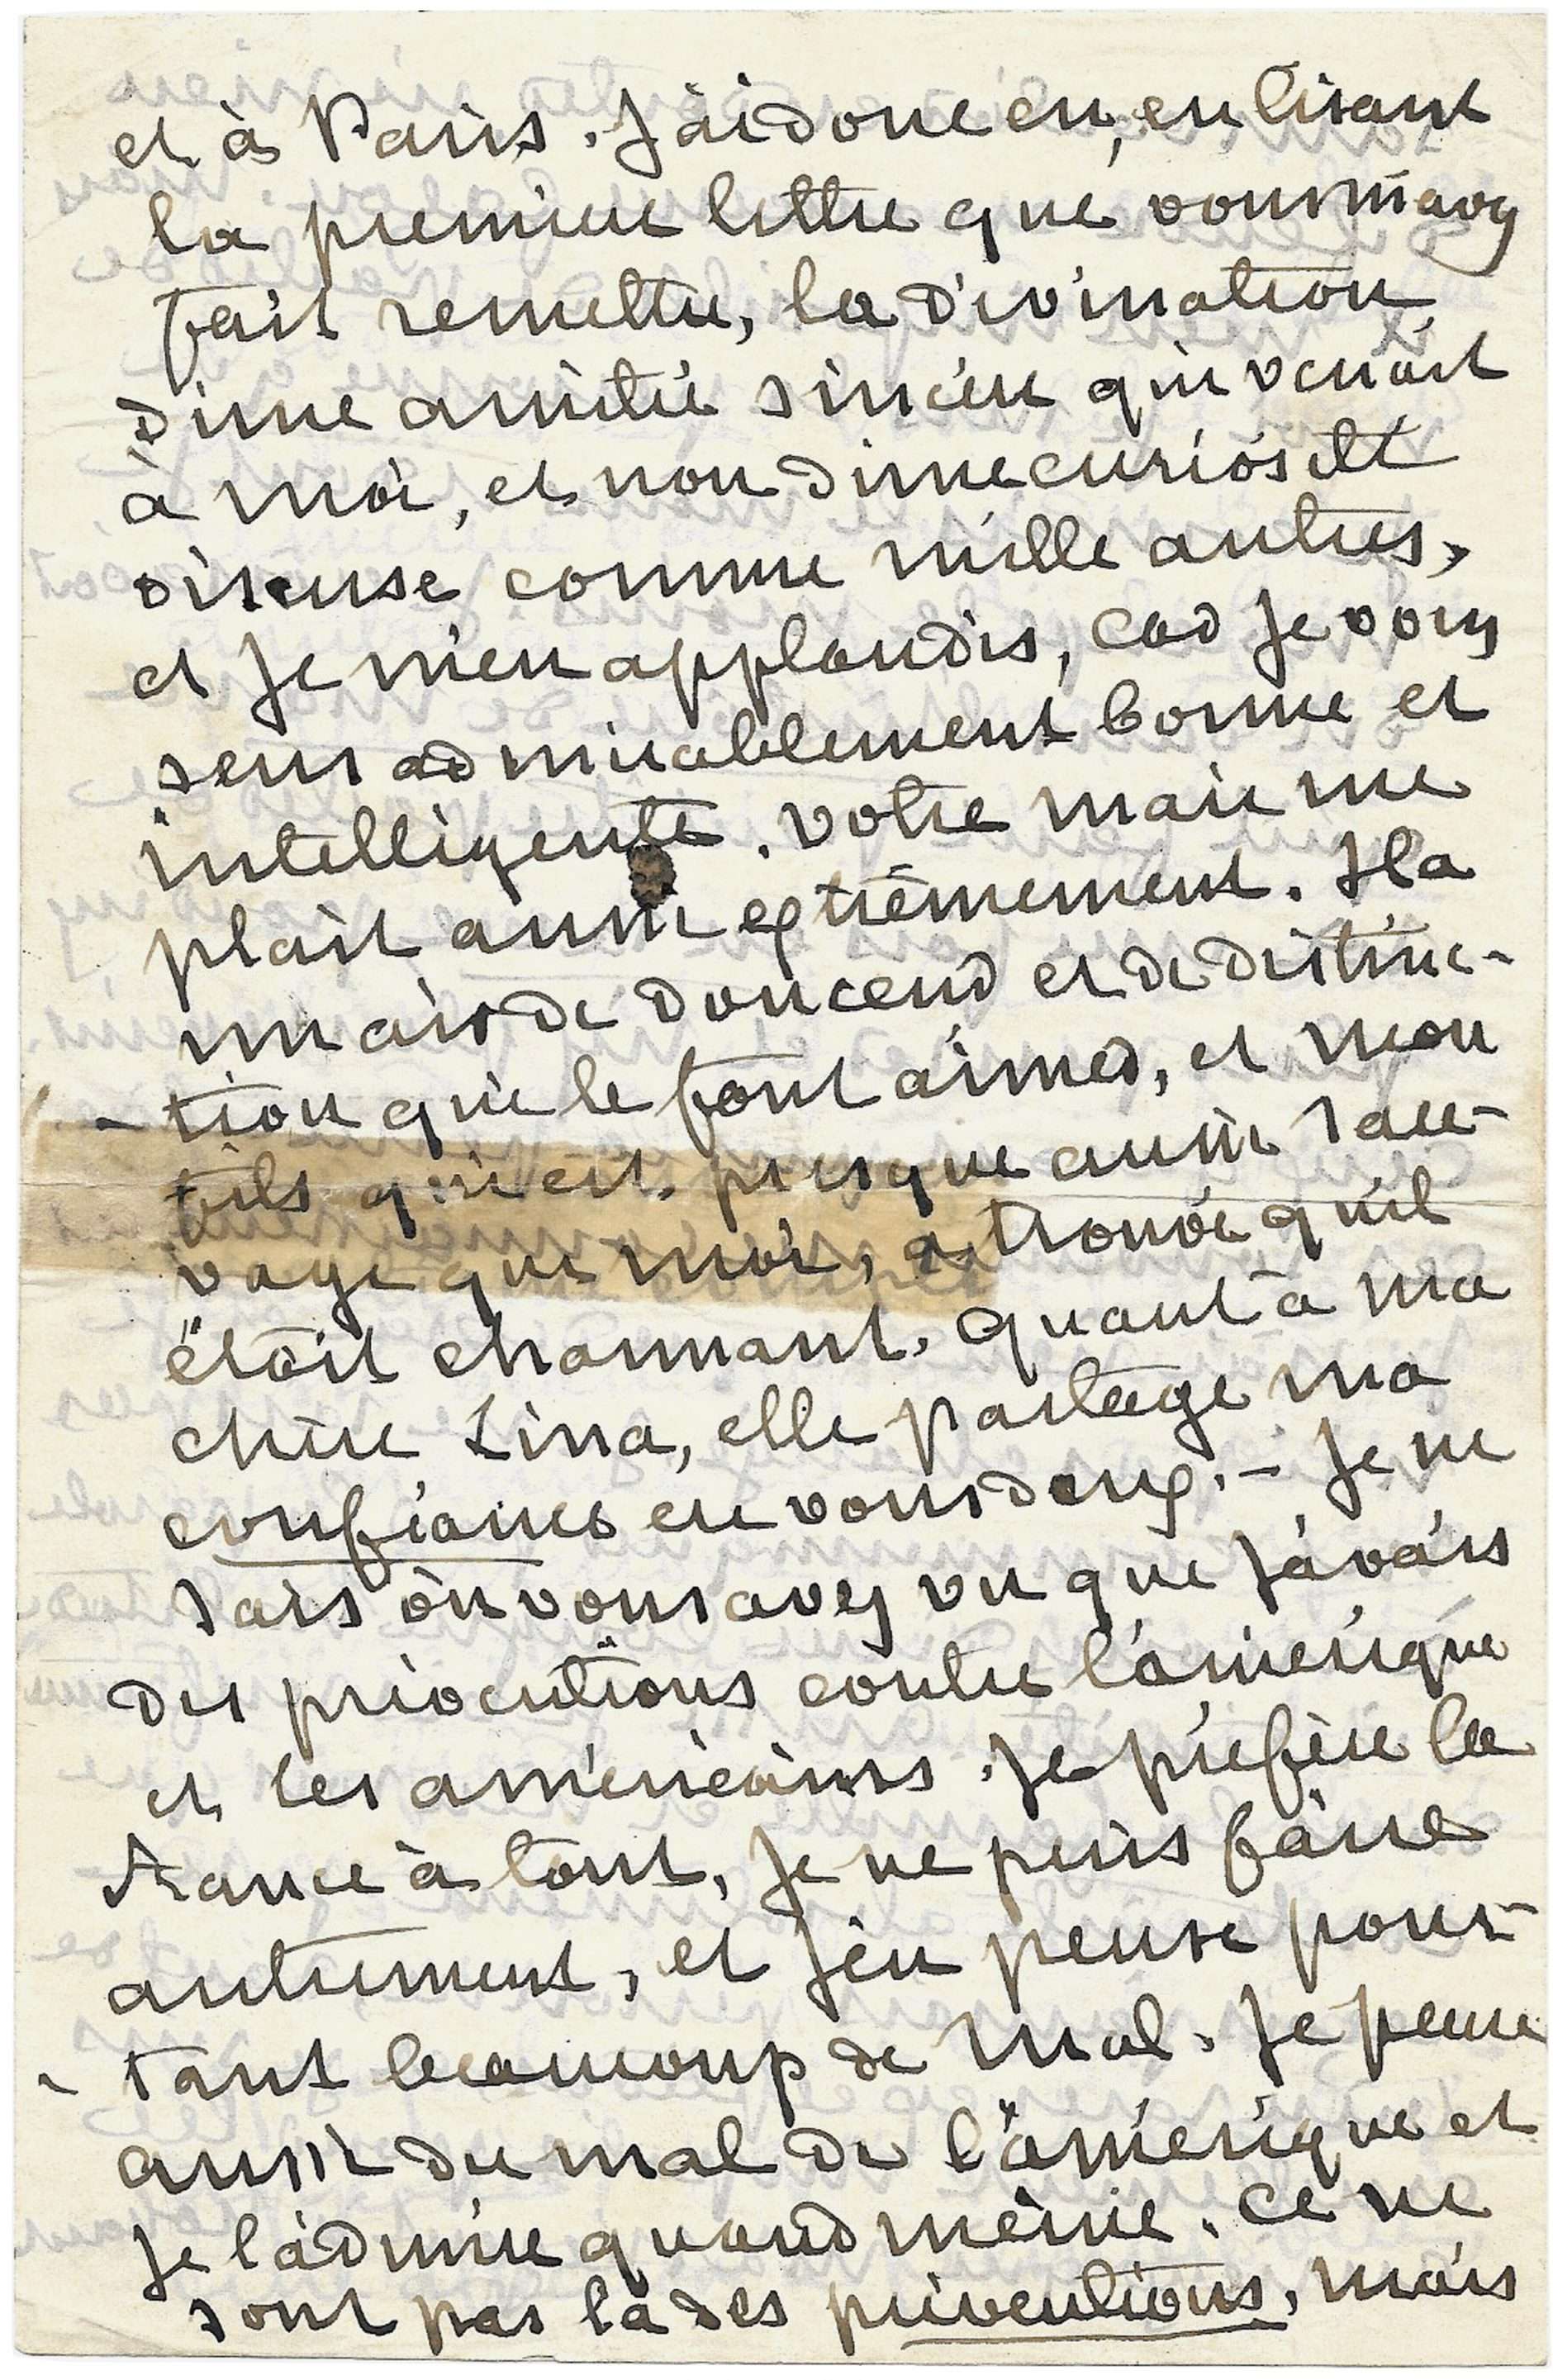 et à Paris. J'ai donc eu, en lisant
la première lettre que vous m'avez
fait remettre, la divination
d'une amitié sincère qui venait
à moi, et non d'une curiosité
oiseuse comme mille autres,
et je m'en applaudis, car je vous
sens admirablement bonne et
intelligente. Votre mari me
plait aussi extrêmement. Il a
un air de douceur et de distinc-
-tion qui le font aimer, et mon
fils qui est presque aussi sau-
vage que moi, a trouvé qu'il
était charmant. Quant à ma
chère Lina, elle partage ma
confiance en vous deux. – Je ne
sais où vous avez vu que j'avais
des préventions contre l'amérique
et les américains. Je préfère la
France à tout, je ne puis faire
autrement, et j'en pense pour-
-tant beaucoup de mal. Je pense
aussi du mal de l'amérique et
je l'admire quand même. Ce ne
sont pas là des préventions, mais